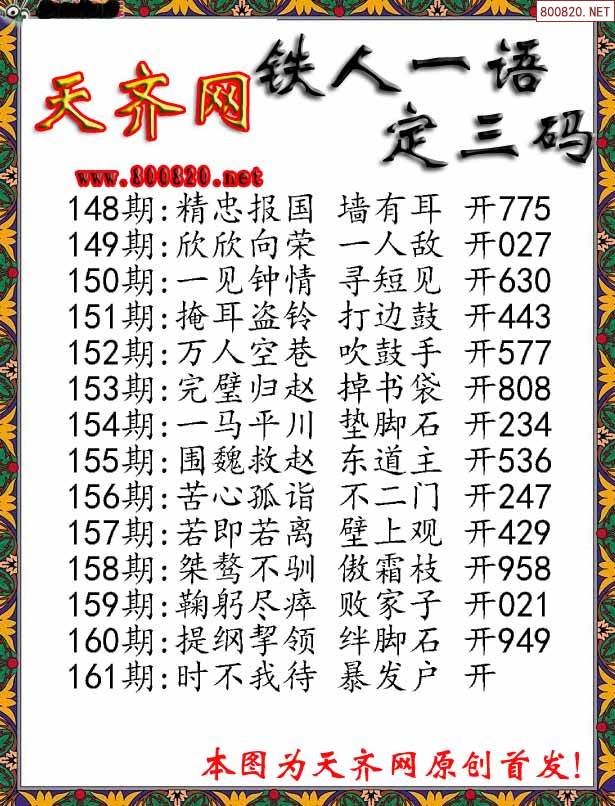 800820.NET
铁人一语
天齐网
定三码
www.800820.net
148期:精忠报国 墙有耳 开775
149期:欣欣向荣 一人敌 开027
150期:一见钟情 寻短见 开630
151期:掩耳盗铃 打边鼓 开443
152期:万人空巷 吹鼓手 开577
153期:完璧归赵 掉书袋 开808
154期:一马平川 垫脚石 开234
155期:围魏救赵 东道主 开536
156期:苦心孤诣 不二门 开247
157期:若即若离 壁上观 开429
158期:桀骜不驯 傲霜枝 开958
159期:鞠躬尽瘁 败家子 开021
160期:提纲挈领 绊脚石 开949
161期:时不我待 暴发户 开
本图为天齐网原创首发!